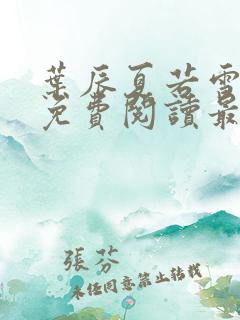 葉辰夏若雪
免費閱讀最
張芬
未經同意禁止轉載